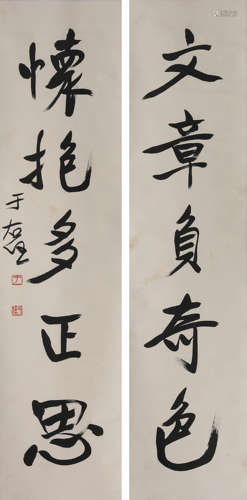 文章負奇色
懷抱多正思
于右任